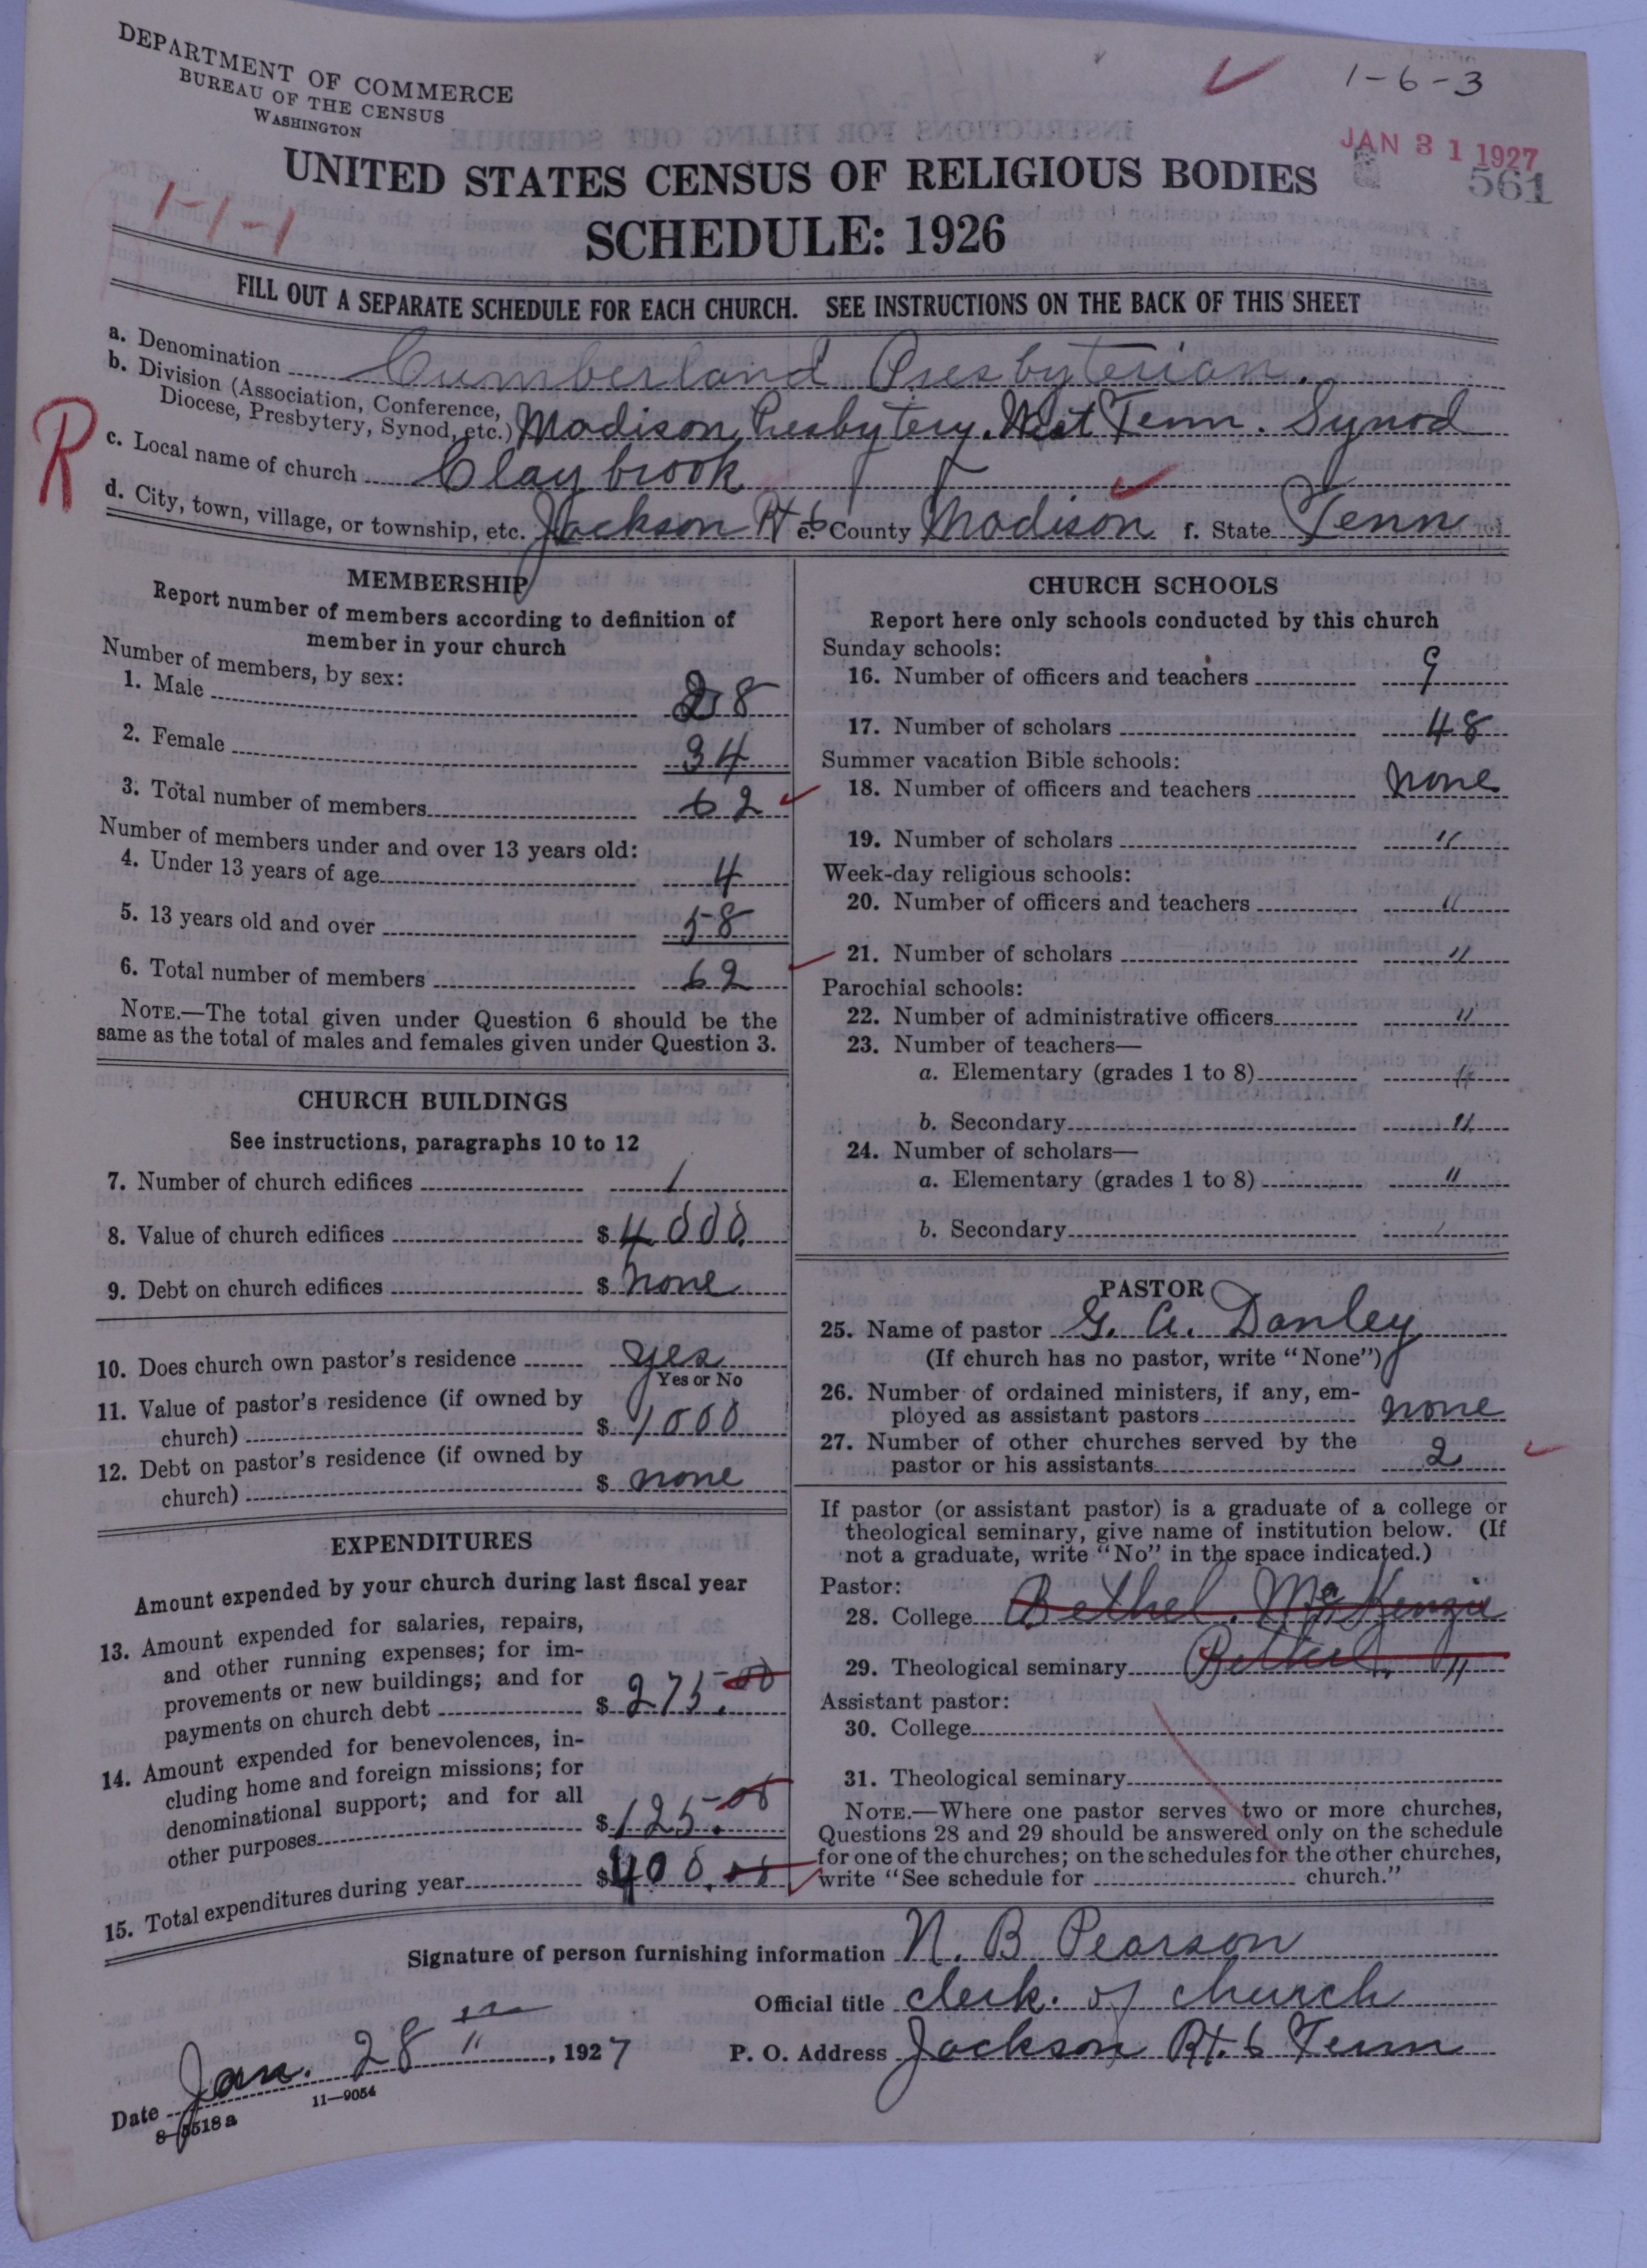 DEPARTMENT OF COMMERCE
BUREAU OF THE CENSUS
WASHINGTON
1-6-3
JAN 31 1927
561
1-1-1
UNITED STATES CENSUS OF RELIGIOUS BODIES
SCHEDULE: 1926
FILL OUT A SEPARATE SCHEDULE FOR EACH CHURCH. SEE INSTRUCTIONS ON THE BACK OF THIS SHEET
a. Denomination Cumberland Presbyterian.
b. Division (Association, Conference,
Diocese, Presbytery, Synod, etc.) Madison Presbytery. West Tenn. Synod
R
c. Local name of church Claybrook
d. City, town, village, or township, etc. Jackson Rt 6 e. County Madison f. State Tenn
MEMBERSHIP
Report number of members according to definition of
member in your church
Number of members, by sex:
1. Male 28
2. Female 34
3. Total number of members 62
Number of members under and over 13 years old:
4. Under 13 years of age 4
5. 13 years old and over 58
6. Total number of members 62
NOTE.—The total given under Question 6 should be the
same as the total of males and females given under Question 3.
CHURCH BUILDINGS
See instructions, paragraphs 10 to 12
7. Number of church edifices 1
8. Value of church edifices $ 4000.
9. Debt on church edifices $ none
10. Does church own pastor's residence yes
Yes or No
11. Value of pastor's residence (if owned by
church) $ 1000
12. Debt on pastor's residence (if owned by
church) $ none
EXPENDITURES
Amount expended by your church during last fiscal year
13. Amount expended for salaries, repairs,
and other running expenses; for im-
provements or new buildings; and for
payments on church debt $ 275.00
14. Amount expended for benevolences, in-
cluding home and foreign missions; for
denominational support; and for all
other purposes $ 125.00
15. Total expenditures during year $ 400.00
CHURCH SCHOOLS
Report here only schools conducted by this church
Sunday schools:
16. Number of officers and teachers 9
17. Number of scholars 48
Summer vacation Bible schools:
18. Number of officers and teachers none
19. Number of scholars "
Week-day religious schools:
20. Number of officers and teachers "
21. Number of scholars "
Parochial schools:
22. Number of administrative officers "
23. Number of teachers—
a. Elementary (grades 1 to 8) "
b. Secondary "
24. Number of scholars—
a. Elementary (grades 1 to 8) "
b. Secondary
PASTOR
25. Name of pastor G. A. Danley
(If church has no pastor, write "None")
26. Number of ordained ministers, if any, em-
ployed as assistant pastors none
27. Number of other churches served by the
pastor or his assistants 2
If pastor (or assistant pastor) is a graduate of a college or
theological seminary, give name of institution below. (If
not a graduate, write "No" in the space indicated.)
Pastor:
28. College Bethel. McKenzie
29. Theological seminary Bethel. "
Assistant pastor:
30. College
31. Theological seminary
NOTE.—Where one pastor serves two or more churches,
Questions 28 and 29 should be answered only on the schedule
for one of the churches; on the schedules for the other churches,
write "See schedule for church."
Signature of person furnishing information N. B Pearson
Official title clerk. of church
Date Jan. 28 th, 1927 P. O. Address Jackson Rt. 6 Tenn
8-5518a 11-9054